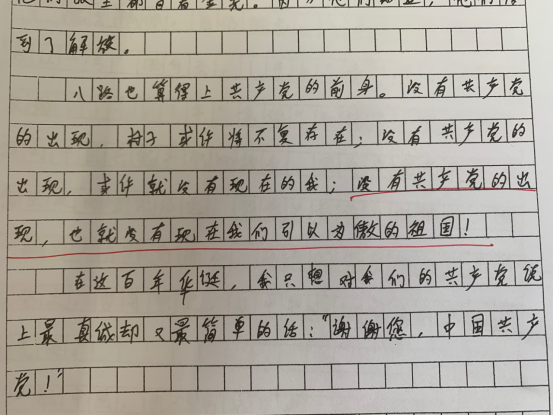 到了解放。
八路也算得上共产党的前身。没有共产党
的出现，村子或许将不复存在；没有共产党的
出现，或许就没有现在的我；没有共产党的出
现，也就没有现在我们引以为傲的祖国！
在这百年华诞，我只想对我们的共产党说
上最真诚却又最简单的话：“谢谢您，中国共产
党！”